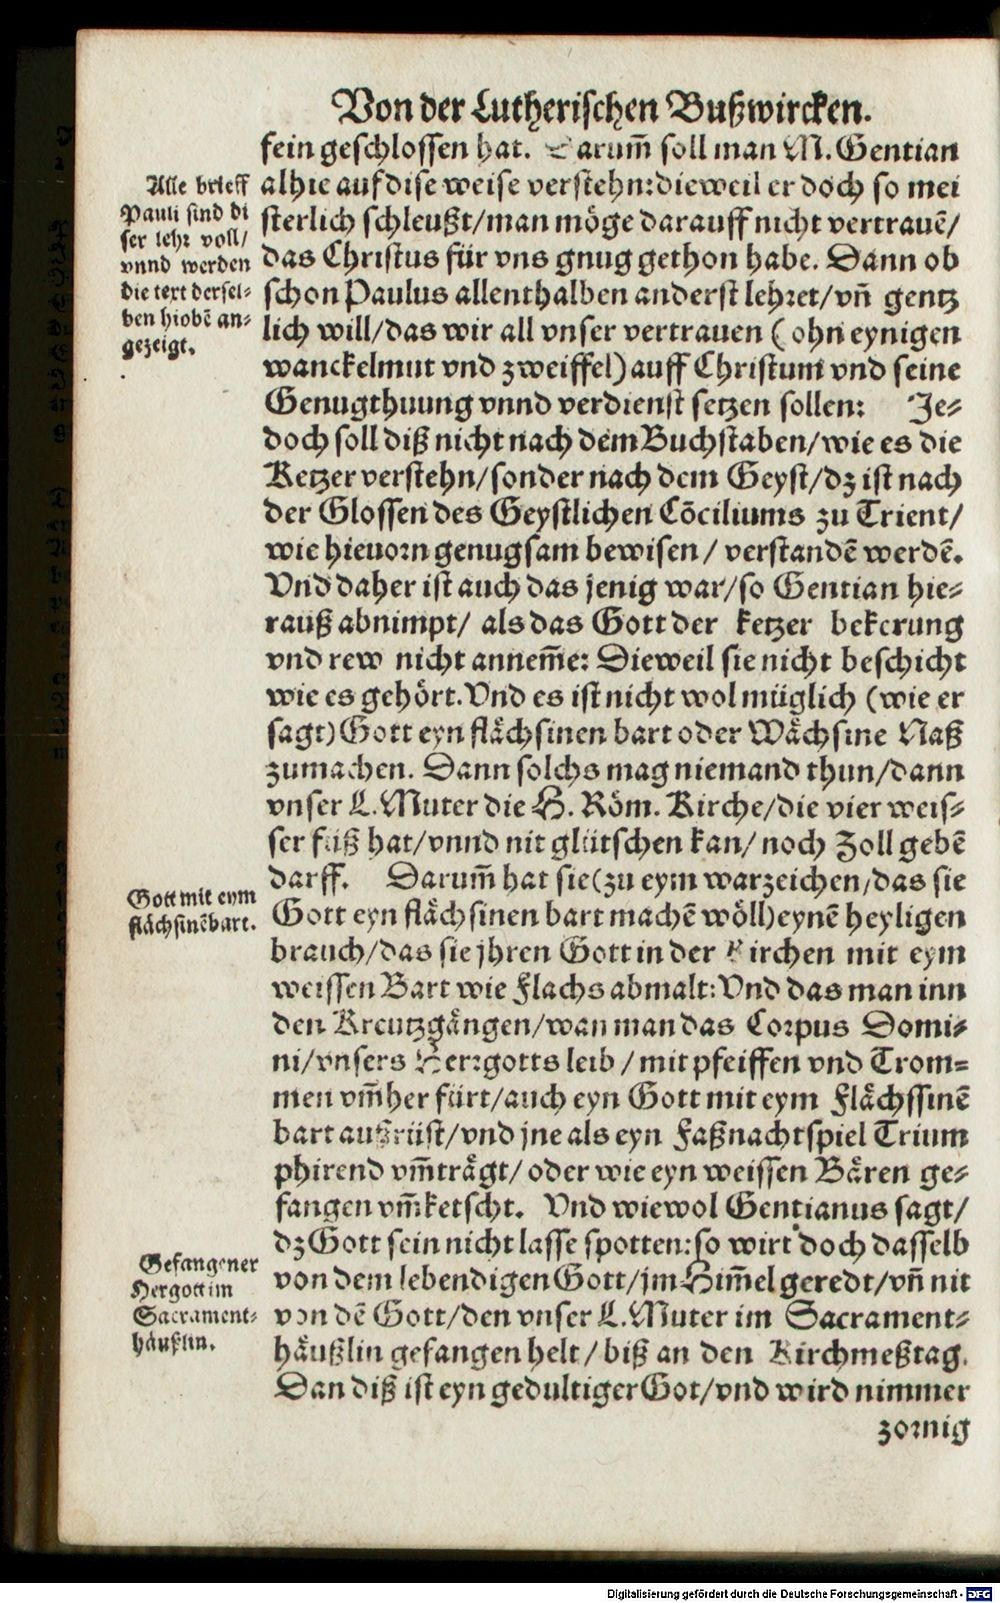 Von der Lutherischen Bußwircken.
fein geschlossen hat. Darum̃ soll man M. Gentian
alhie auf dise weise verstehn: dieweil er doch so mei
sterlich schleußt/man möge darauff nicht vertrauẽ/
das Christus für vns gnug gethon habe. Dann ob
schon Paulus allenthalben anderst lehret/vñ gentz
lich will/das wir all vnser vertrauen (ohn eynigen
wanckelmut vnd zweiffel) auff Christum vnd seine
Genugthuung vnnd verdienst setzen sollen: Je-
doch soll diß nicht nach dem Buchstaben/wie es die
Ketzer verstehn/sonder nach dem Geyst/dz ist nach
der Glossen des Geystlichen Cõciliums zu Trient/
wie hieuorn genugsam bewisen/ verstandẽ werdẽ.
Vnd daher ist auch das jenig war/so Gentian hie-
rauß abnimpt/ als das Gott der ketzer bekerung
vnd rew nicht annem̃e: Dieweil sie nicht beschicht
wie es gehört. Vnd es ist nicht wol müglich (wie er
sagt) Gott eyn flächsinen bart oder Wächsine Naß
zumachen. Dann solchs mag niemand thun/dann
vnser L. Muter die H. Röm. Kirche/die vier weis-
ser füß hat/vnnd nit glütschen kan/ noch Zoll gebẽ
darff. Darum̃ hat sie (zu eym warzeichen/das sie
Gott eyn flächsinen bart machẽ wöll) eynẽ heyligen
brauch/das sie jhren Gott in der Kirchen mit eym
weissen Bart wie Flachs abmalt: Vnd das man inn
den Kreutzgängen/wan man das Corpus Domi-
ni/vnsers Herrgotts leib/ mit pfeiffen vnd Trom-
men vm̃her fürt/auch eyn Gott mit eym Flächssinẽ
bart außrüst/vnd jne als eyn Faßnachtspiel Trium
phirend vm̃trägt/ oder wie eyn weissen Bären ge-
fangen vm̃ketscht. Vnd wiewol Gentianus sagt/
dz Gott sein nicht lasse spotten: so wirt doch dasselb
von dem lebendigen Gott/jm Him̃el geredt/vñ nit
von dẽ Gott/den vnser L. Muter im Sacrament-
häußlin gefangen helt/ biß an den Kirchmeßtag.
Dan diß ist eyn gedultiger Got/vnd wird nimmer
zornig
Alle brieff
Pauli sind di
ser lehr voll/
vnnd werden
die text dersel-
ben hiobẽ an-
gezeigt.
Gott mit eym
flächsinẽ bart.
Gefangener
Hergott im
Sacrament-
häußlin.
Digitalisierung gefördert durch die Deutsche Forschungsgemeinschaft - DFG